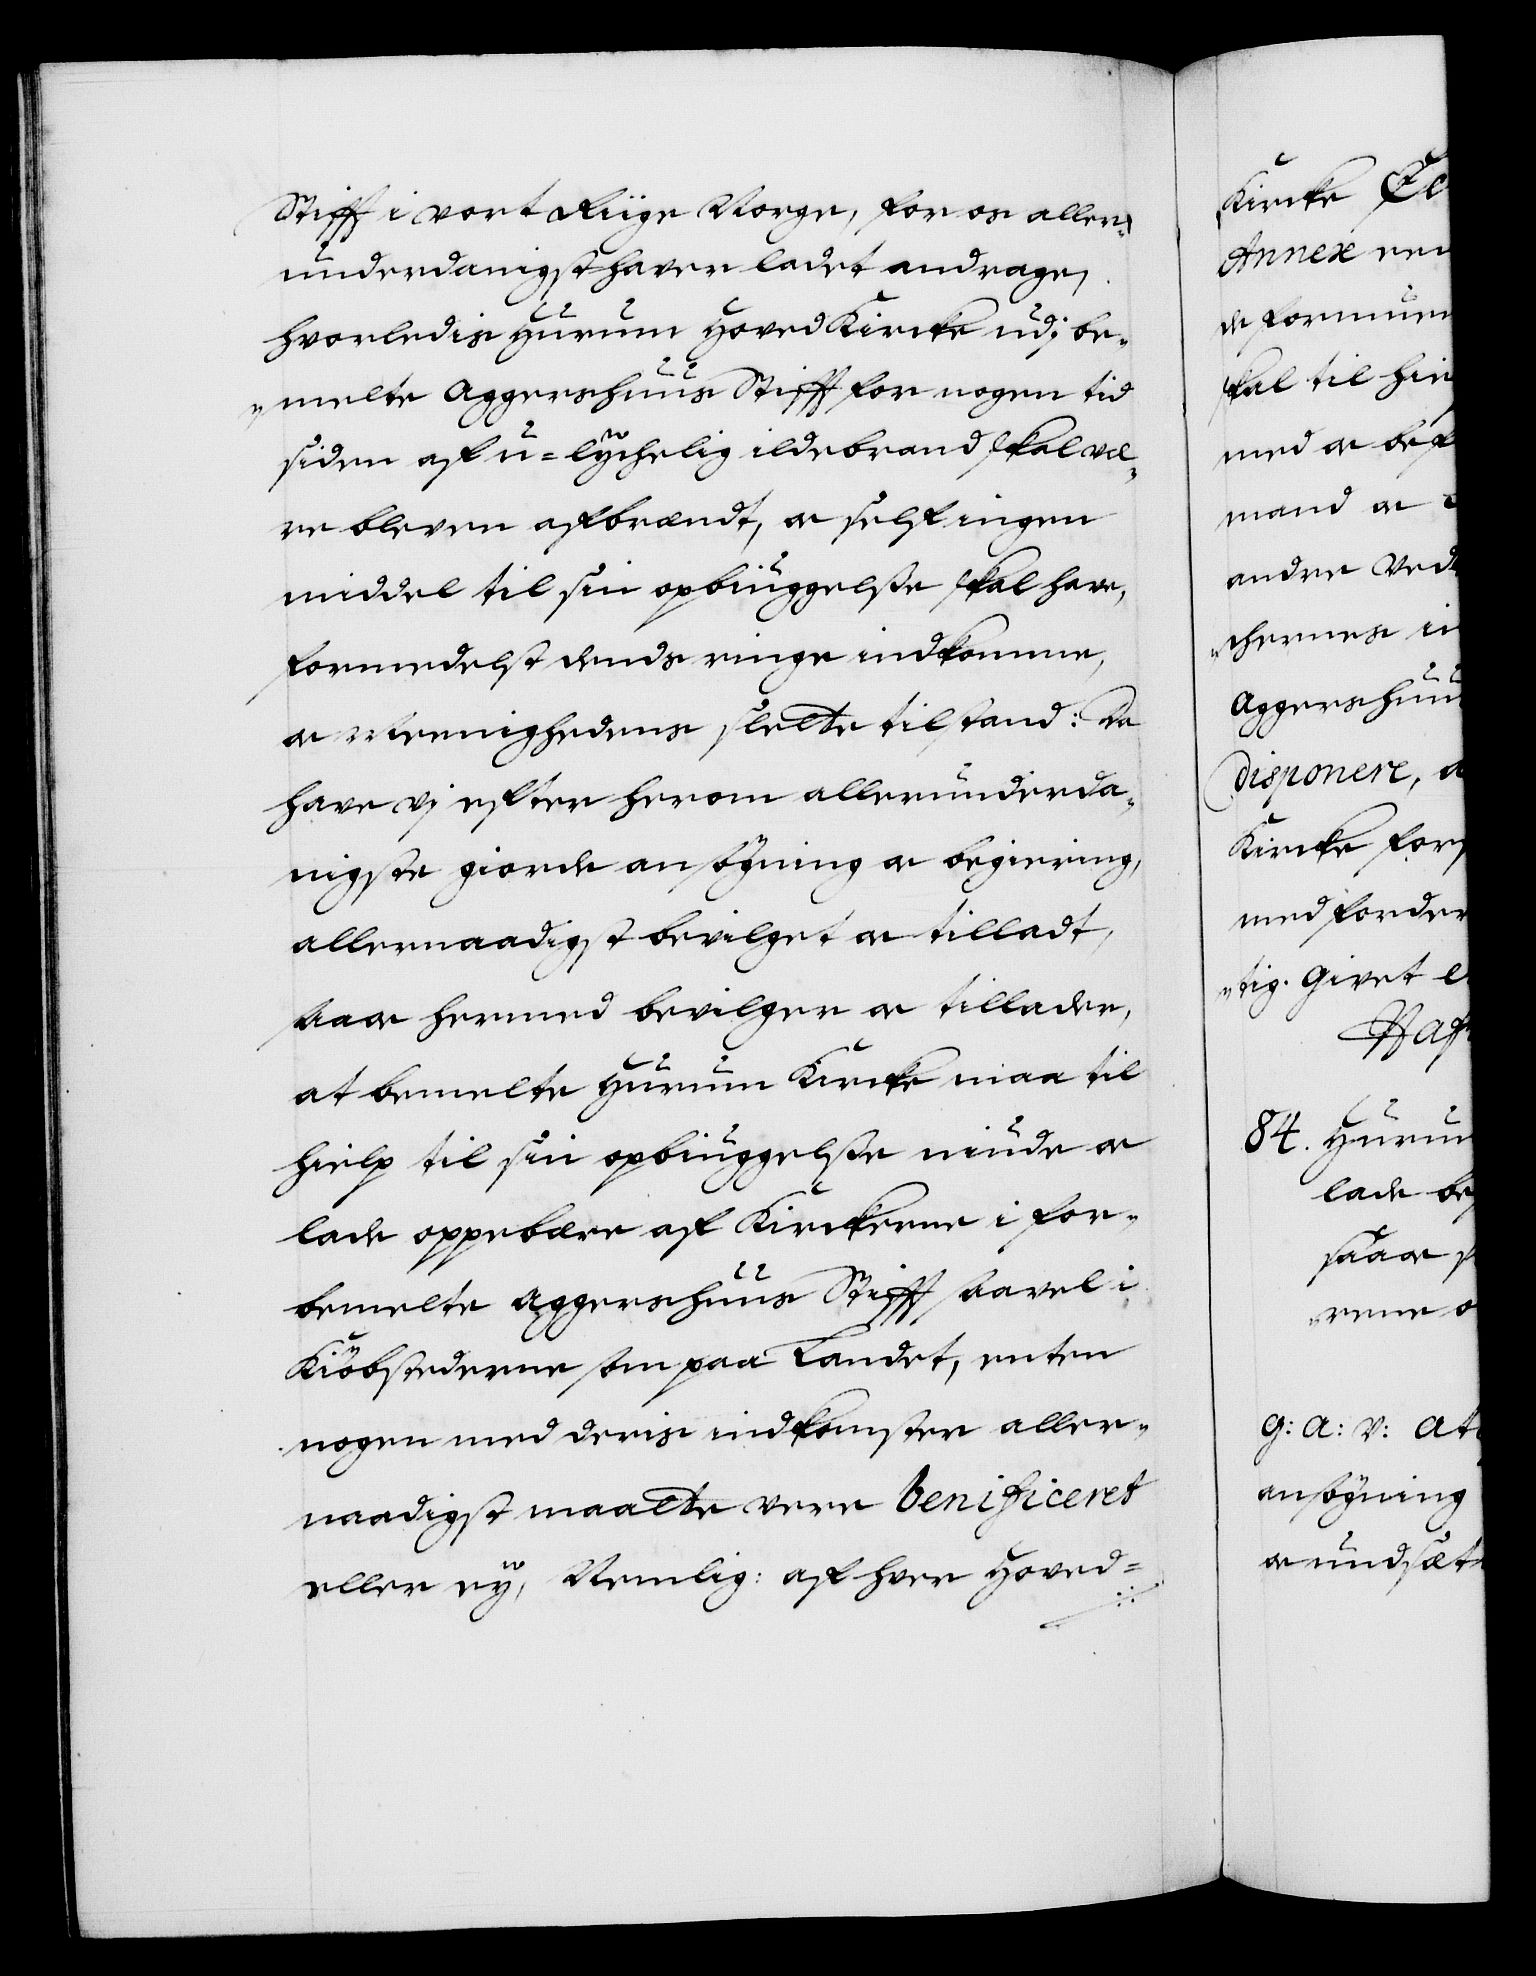 Stifft i vort Riige Norge, for os aller-
underdanigst haver ladet andrage,
hvorledis Hurum Hoved Kircke udj be-
melte Aggershuus Stifft for nogen tid
siden af u=lÿchelig ildebrand skal væ-
re bleven afbrændt, oc self ingen
middel til sin opbiuggelsse skal have,
formedelst dends ringe indkomme,
oc Meenighedens slette tilstand: Da
have vj efter herom allerunderda-
nigste giorde ansøgning oc begiering,
allernaadigst bevilget oc tilladt,
saa oc hermed bevilger oc tillader,
at bemelte Hurum Kircke maa til
hielp til sin opbiuggelsse niude oc
lade oppebære af Kirckerne i for-
bemelte Aggershuus Stifft saavel i
Kiöbstederne som paa Landet, enten
nogen med deris indkomster aller-
naadigst maatte vere benificeret
eller eÿ, Nemlig: af hver Hoved=
Kircke
Annex
de formuen
skal til
med oc
mand oc
andre
Aggershuu
Disponere,
Kircke
med
tig. Givet
84. Hurum
lade
saa oc
G: A: V: At
ansøgning
oc undsæt